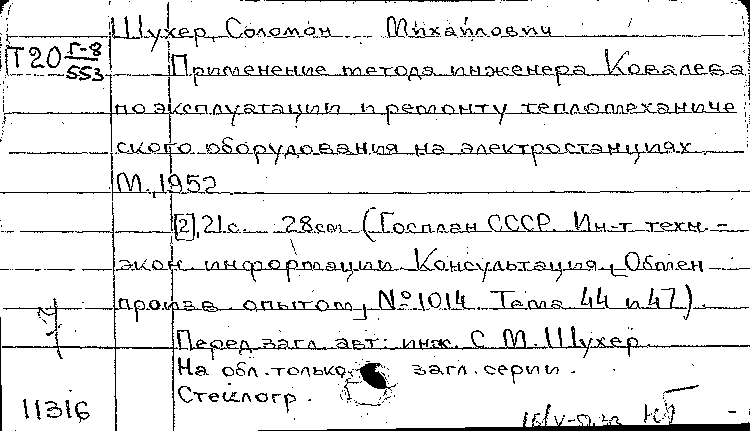 Шухер, Соломон Михайлович
Т20 Г-8/553
Применение метода инженера Ковалева
по эксплуатации и ремонту тепломеханиче
ского оборудования на электростанциях
М., 1952
[2], 21с. 28см (Госплан СССР. Ин-т техн.-
экон. информации Консультация, Обмен
произв. опытом, № 1014. Тема 44 и 47).
Перед загл. авт: инж. С. М. Шухер.
На обл. только загл. серии.
Стеклогр.
11316